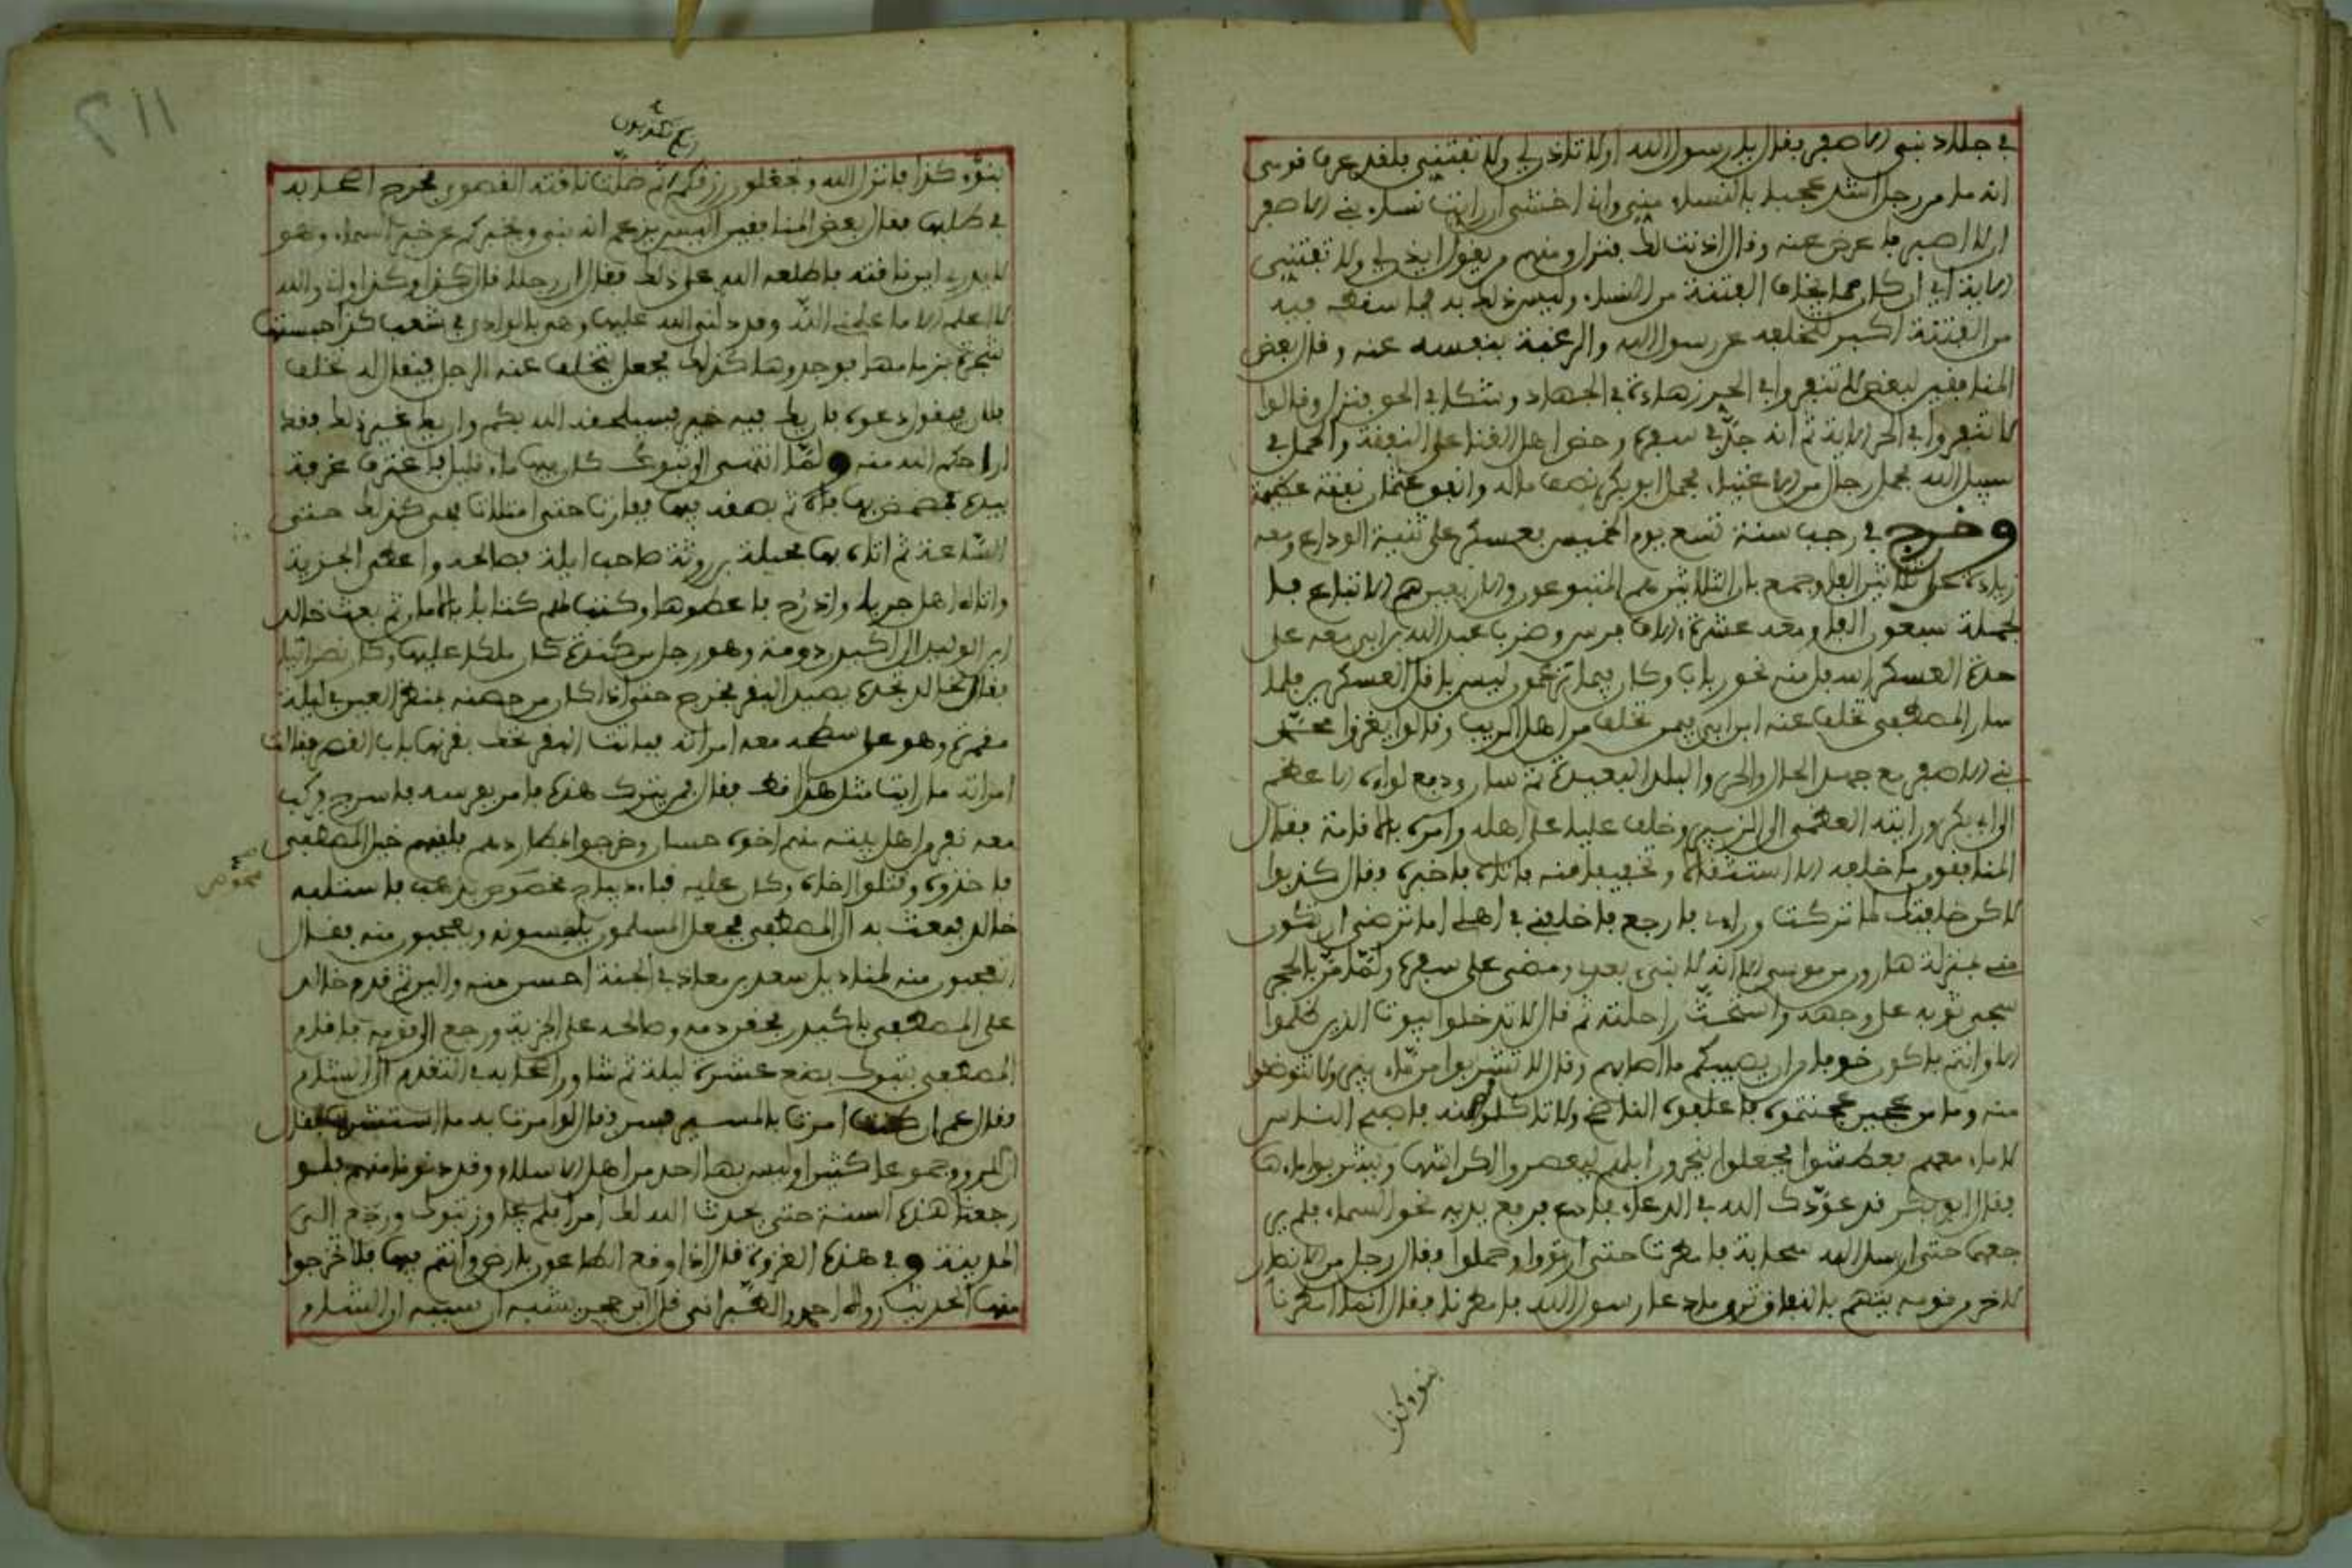 في جلاد بني الاصفر فقال يا رسول الله او لا تاذن لي ولا تفتنني فلقد عرف قومي
انه ما من رجل اشد عجبا بالنساء مني واني اخشى ان رايت نساء بني الاصفر
ان لا اصبر فاعرض عنه وقال اذنت لك فنزل ومنهم من يقول ايذن لي ولا تفتني
الاية اي ان كان مما يخاف الفتنة من النساء وليس ذلك به فما سقط فيه
من الفتنة اكبر لتخلفه عن رسول الله والرغبة بنفسه عنه وقال بعض
المنافقين لبعض لا تنفروا في الحر زهادة في الجهاد وشكا في الحق فنزل وقالوا
لا تنفروا في الحر الاية ثم انه جد في سفره وحض اهل الغنا على النفقة والحمل في
سبيل الله فحمل رجال من الاغنياء فحمل ابو بكر نصف ماله وانفق عثمان نفقة عظيمة
وخرج في رجب سنة تسع يوم الخميس فعسكر على ثنية الوداع ومعه
زيادة على ثلاثين الفا وجمع بان الثلاثين هم المتبوعون والاربعين هم الاتباع فا
لجملة سبعون الفا ومعه عشرة الاف فرس وضرب عبد الله بن ابي معه على
حدة العسكر اسفل منه نحو رباب وكان فيما يزعمون ليس باقل العسكرين فلما
سار المصطفى تخلف عنه ابن ابي فيمن تخلف من اهل الريب وقالوا يغزوا محمد
بني الاصفر مع جهد الحال والحر والبلد البعيدة ثم سار ودفع لواه الاعظم
الى ابي بكر ورايته العظمى الى الزبير وخلف عليا على اهله وامره بالاقامة فقال
المنافقون ما خلفه الا استثقالا وتخفيفا منه فاتاه فاخبره فقال كذبوا
لاكن خلفتك لما تركت وراءي فارجع فاخلفني في اهلي اما ترضى ان تكون
مني بمنزلة هارون من موسى الا انه لا نبي بعدي ومضى على سفره ولما مر بالحجر
سجى ثوبه على وجهه واستحث راحلته ثم قال لا تدخلوا بيوت الذين ظلموا
الا وانتم باكون خوفا من ان يصيبكم ما اصابهم وقال لا تشربوا من مائه شيا ولا تتوضوا
منه وما من عجين عجنتموه فاعلفوه النواضح ولا تاكلوا منه فاصبح الناس
لا ماء معهم فعطشوا فجعلوا ينحرون ابلهم ليعصروا اكراشها ويشربوا ماءها
فقال ابو بكر قد عودك الله في الدعاء فادع فرفع يديه نحو السماء فلم ير
جعها حتى ارسل الله سحابة فامطرت حتى ارتووا وحملوا فقال رجل من الانصار
لاخر من قومه يتهم بالنفاق ترى ما دعا رسول الله فامطرنا فقال انما امطرنا
بنوء وكذا
ربع تشريون
بنوء كذا فانزل الله وتجعلون رزقكم ثم ضلت ناقته القصوى فخرج اصحابه
في طلبها فقال بعض المنافقين اليس يزعم انه نبي ويخبركم عن خبر السماء وهو
لا يدري اين ناقته فاطلعه الله على ذلك فقال ان رجلا قال كذا وكذا واني والله
لا اعلم الا ما علمني الله وقد دلني الله عليها وهي بالوادي في شعب كذا حبستها
شجرة بزمامها فوجدوها كذلك فجعل يتخلف عنه الرجل فيقال له تخلف
فلان فيقول دعوه فان يك فيه خير فسيلحقه الله بكم وان يك غير ذلك فقد
اراحكم الله منه ولما انتهى الى تبوك كان بها ماء قليل فاغترف غرفة
بيده فمضمض بها فاه ثم بصقه فيها ففارت حتى امتلات فهي كذلك حتى
الساعة ثم اتاه بها يحيلة بن روبة صاحب ايلة فصالحه واعطى الجزية
واتاه اهل جربا واذرح فاعطوها وكتب لهم كتابا بالامان ثم بعث خالد
ابن الوليد الى اكيدر دومة وهو رجل من كندة كان ملكا عليها وكان نصرانيا
فقال لخالد تجده يصيد البقر فخرج حتى اذا كان من حصنه بمنظر العين في ليلة
مقمرة وهو على سطحه معه امراته فباتت البقر تحك بقرنها باب القصر فقالت
امراته ما رايت مثل هذا قط فقال فمن يترك هذه فامر بفرسه فاسرج وركب
معه نفر من اهل بيته منهم اخوه حسان وخرجوا بمطاردهم فلقيتهم خيل المصطفى
فاخذوه وقتلوا اخاه وكان عليه قباء ديباج مخصوص بذهب فاستلبه
مخوص
خالد فبعث به الى المصطفى فجعل المسلمون يلمسونه ويعجبون منه فقال
اتعجبون منه لمناديل سعد بن معاذ في الجنة احسن منه والين ثم قدم خالد
على المصطفى باكيدر فحقن دمه وصالحه على الجزية ورجع الى قريته فاقام
المصطفى بتبوك بضع عشرة ليلة ثم شاور اصحابه في التقدم الى الشام
فقال عمر ان كنت امرت بالمسير فسر فقال لو امرت به ما استشرتكم فقال
ان للروم جموعا كثيرا وليس بها احد من اهل الاسلام وقد دنونا منهم فلو
رجعنا هذه السنة حتى يحدث الله لك امرا فلم يجاوز تبوك ورجع الى
المدينة وفي هذه الغزوة قال اذا وقع الطاعون بارض وانتم بها فلا تخرجوا
منها الحديث رواه احمد والطبراني قال ابن حجر يشبه ان سببه ان الشام